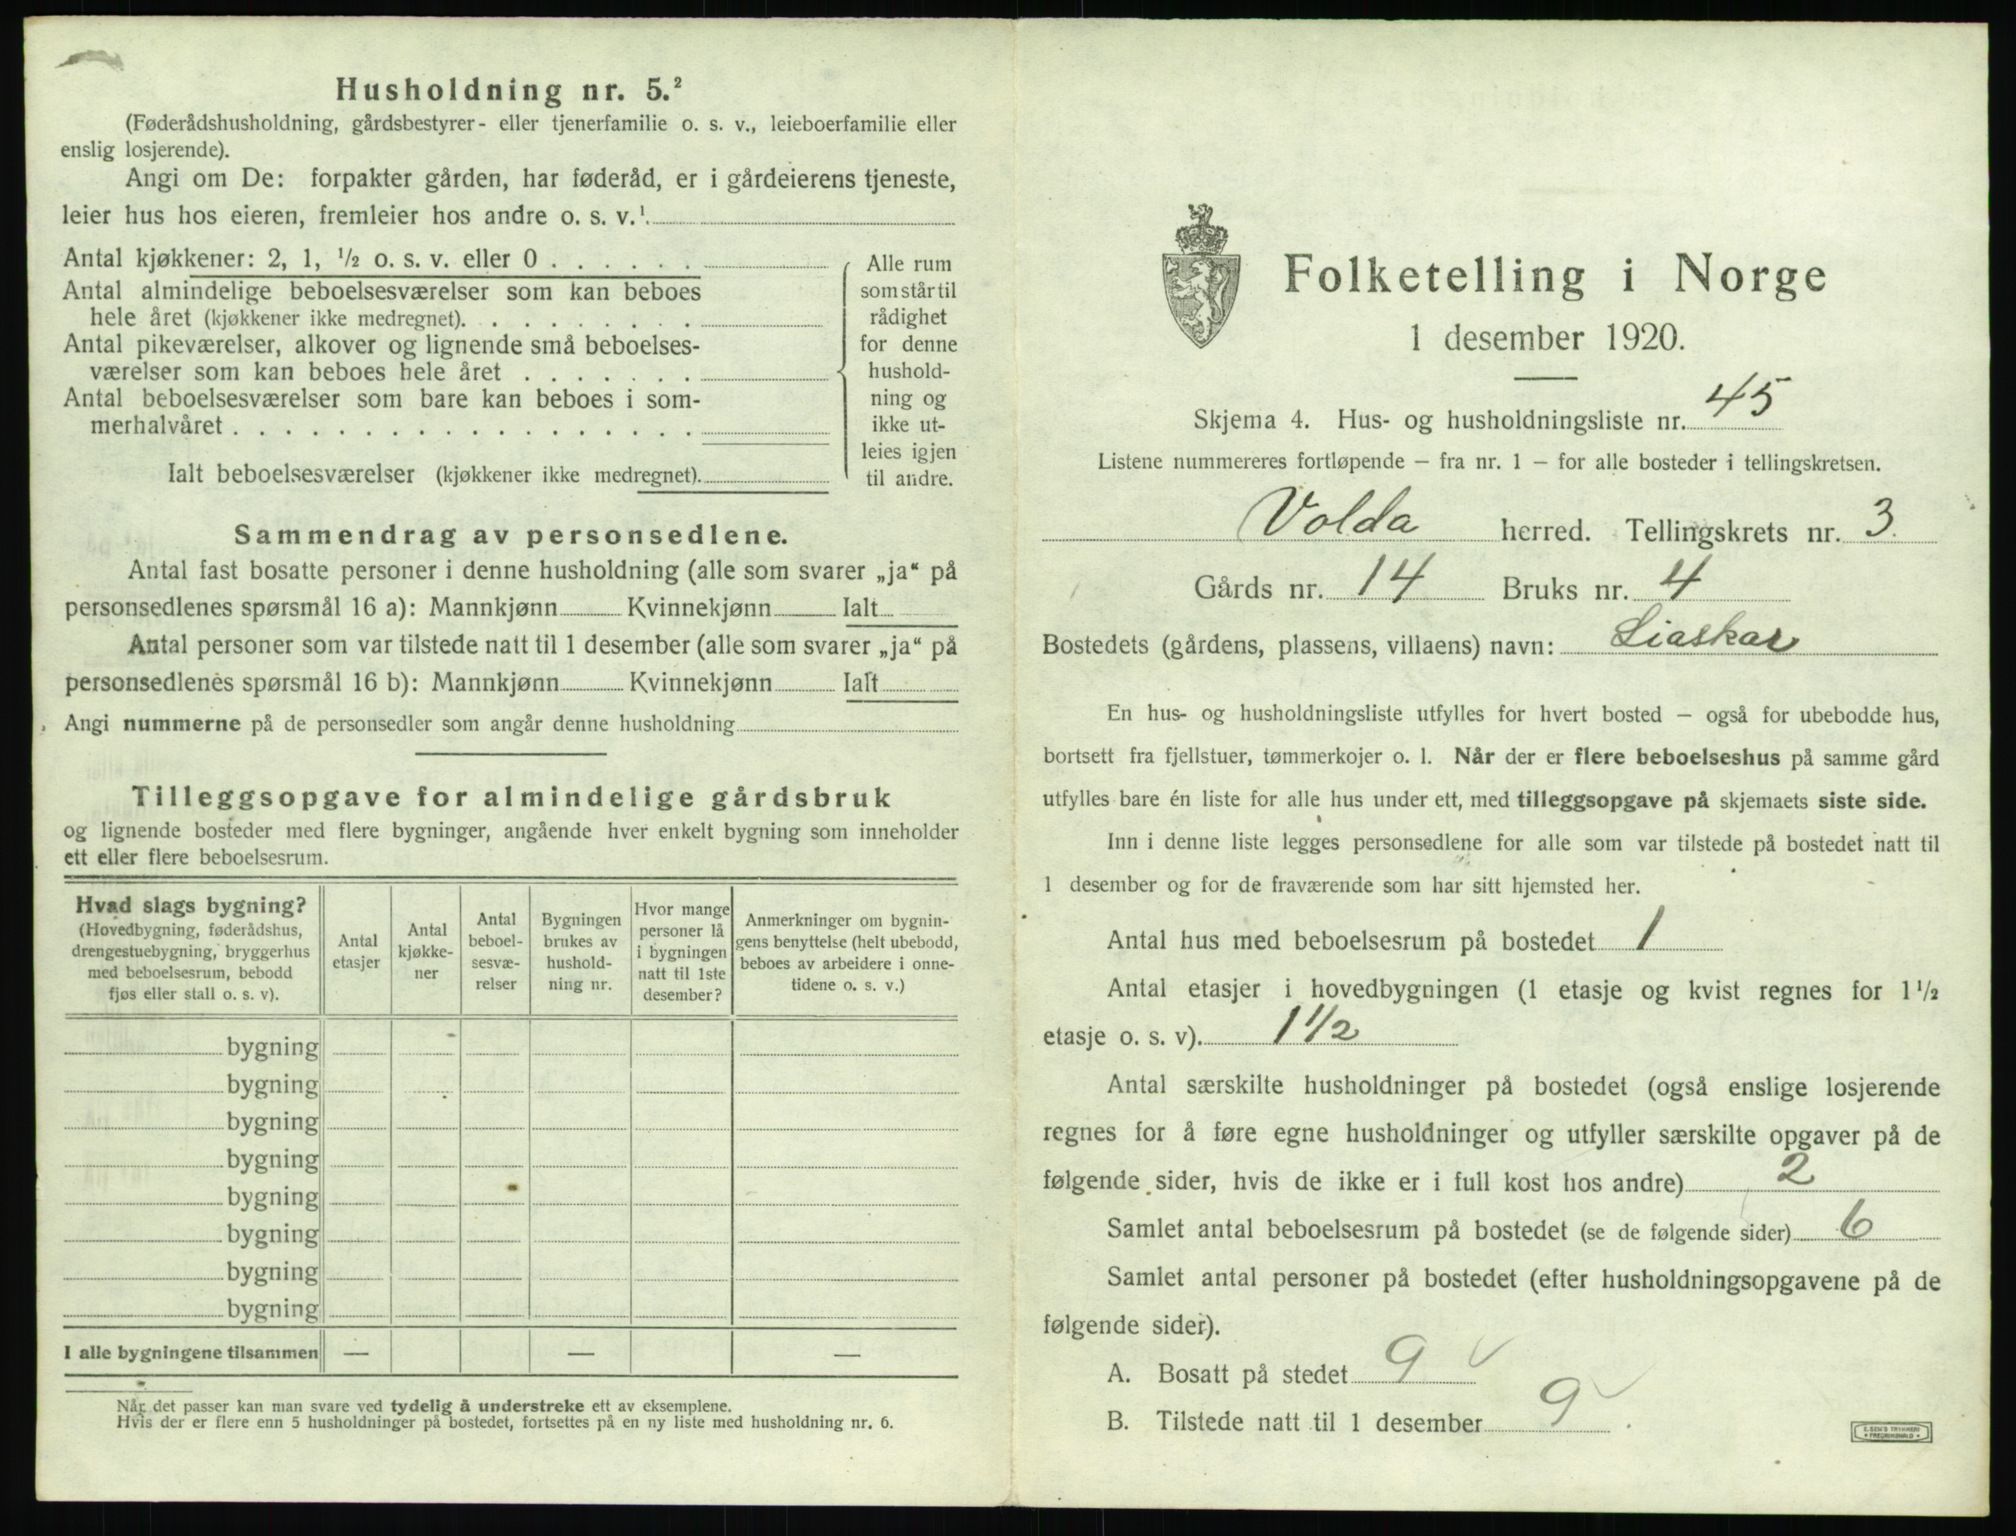 Husholdning nr. 5.²
(Føderådshusholdning, gårdsbestyrer- eller tjenerfamilie o. s. v., leieboerfamilie eller
enslig losjerende).
Angi om De: forpakter gården, har føderåd, er i gårdeierens tjeneste,
leier hus hos eieren, fremleier hos andre o. s. v.¹
Antal kjøkkener: 2, 1, ½ o. s. v. eller 0
Antal almindelige beboelsesværelser som kan beboes
hele året (kjøkkener ikke medregnet).
Antal pikeværelser, alkover og lignende små beboelses-
værelser som kan beboes hele året
Antal beboelsesværelser som bare kan beboes i som-
merhalvåret
Ialt beboelsesværelser (kjøkkener ikke medregnet).
Alle rum
som står til
rådighet
for denne
hushold-
ning og
ikke ut-
leies igjen
til andre.
Sammendrag av personsedlene.
Antal fast bosatte personer i denne husholdning (alle som svarer „ja“ på
personsedlenes spørsmål 16 a): Mannkjønn Kvinnekjønn Ialt
Antal personer som var tilstede natt til 1 desember (alle som svarer „ja“ på
personsedlenes spørsmål 16 b): Mannkjønn Kvinnekjønn Ialt
Angi nummerne på de personsedler som angår denne husholdning
Tilleggsopgave for almindelige gårdsbruk
og lignende bosteder med flere bygninger, angående hver enkelt bygning som inneholder
ett eller flere beboelsesrum.
Hvad slags bygning?
(Hovedbygning, føderådshus,
drengestuebygning, bryggerhus
med beboelsesrum, bebodd
fjøs eller stall o. s. v).
Antal
etasjer
Antal
kjøkke-
ner
Antal
beboel-
sesvæ-
relser
Bygningen
brukes av
hushold-
ning nr.
Hvor mange
personer lå
i bygningen
natt til 1ste
desember?
Anmerkninger om bygnin-
gens benyttelse (helt ubebodd,
beboes av arbeidere i onne-
tidene o. s. v.)
bygning
bygning
bygning
bygning
bygning
bygning
bygning
bygning
I alle bygningene tilsammen — — —
Når det passer kan man svare ved tydelig å understreke ett av eksemplene.
Hvis der er flere enn 5 husholdninger på bostedet, fortsettes på en ny liste med husholdning nr. 6.
Folketelling i Norge
1 desember 1920.
Skjema 4. Hus- og husholdningsliste nr. 45
Listene nummereres fortløpende – fra nr. 1 – for alle bosteder i tellingskretsen.
Volda herred. Tellingskrets nr. 3.
Gårds nr. 14 Bruks nr. 4
Bostedets (gårdens, plassens, villaens) navn: Liaskar
En hus- og husholdningsliste utfylles for hvert bosted – også for ubebodde hus,
bortsett fra fjellstuer, tømmerkojer o. l. Når der er flere beboelseshus på samme gård
utfylles bare én liste for alle hus under ett, med tilleggsopgave på skjemaets siste side.
Inn i denne liste legges personsedlene for alle som var tilstede på bostedet natt til
1 desember og for de fraværende som har sitt hjemsted her.
Antal hus med beboelsesrum på bostedet 1
Antal etasjer i hovedbygningen (1 etasje og kvist regnes for 1½
etasje o. s. v). 1½
Antal særskilte husholdninger på bostedet (også enslige losjerende
regnes for å føre egne husholdninger og utfyller særskilte opgaver på de
følgende sider, hvis de ikke er i full kost hos andre) 2
Samlet antal beboelsesrum på bostedet (se de følgende sider) 6
Samlet antal personer på bostedet (efter husholdningsopgavene på de
følgende sider).
A. Bosatt på stedet 9 ✓
B. Tilstede natt til 1 desember 9 ✓